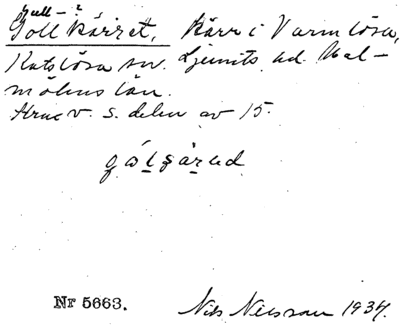 Gull- ?
Gollkärret, Kärr i Varmlösa,
Katslösa sn. Ljunits hd. Mal-
möhus län.
Strax v. s. delen av 15.
gɷ́lçä̀rəd
Nr 5663. Nils Nilsson 1934.